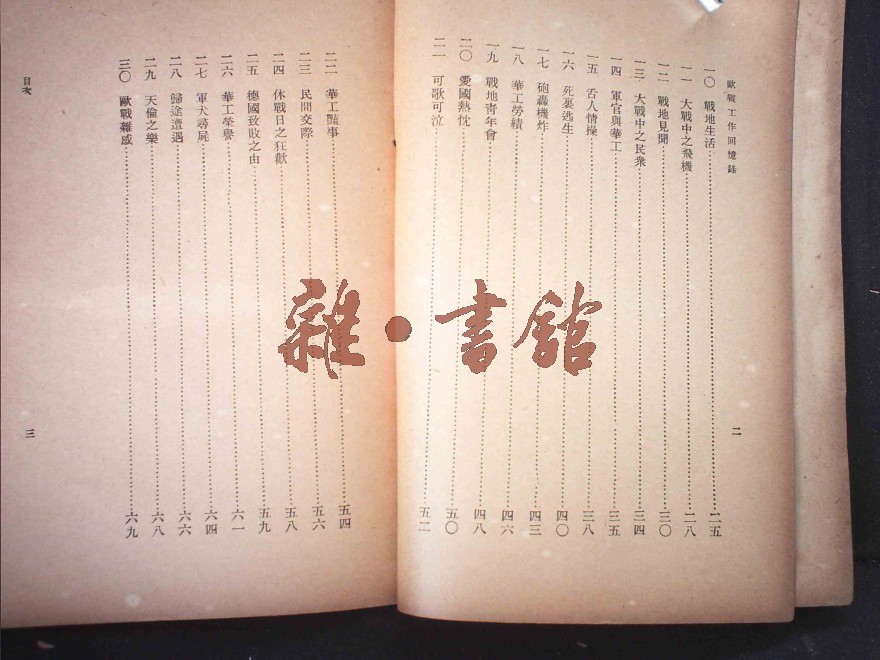 歐戰工作回憶錄
一〇 戰地生活 二五
一一 大戰中之飛機 二八
一二 戰地見聞 三〇
一三 大戰中之民衆 三四
一四 軍官與華工 三五
一五 舌人情操 三八
一六 死裏逃生 四〇
一七 砲轟機炸 四三
一八 華工勞績 四六
一九 戰地靑年會 四八
二〇 愛國熱忱 五〇
二一 可歌可泣 五二
二
二二 華工豔事 五四
二三 民間交際 五六
二四 休戰日之狂歡 五八
二五 德國致敗之由 五九
二六 華工榮譽 六一
二七 軍犬尋屍 六四
二八 歸途遭遇 六六
二九 天倫之樂 六八
三〇 歐戰雜感 六九
目次
三
雜·書館